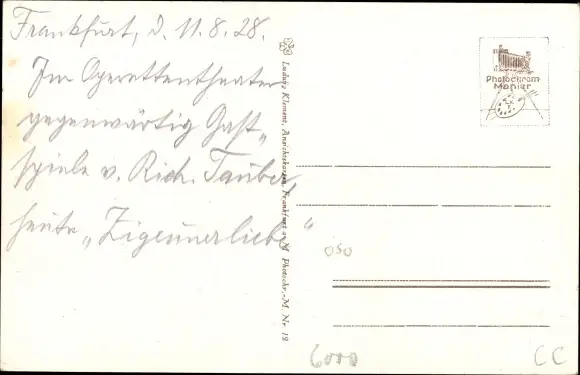 Frankfurt, d. 11.8.28.
Im Operettentheater
gegenwärtig Gast„
spiele v. Rich. Tauber,
heute „Zigeunerliebe“
Ludwig Klement, Ansichtskarten, Frankfurt a. M. Photochr.-M. Nr. 12
Photochrom
Manier
oso
6000
CC